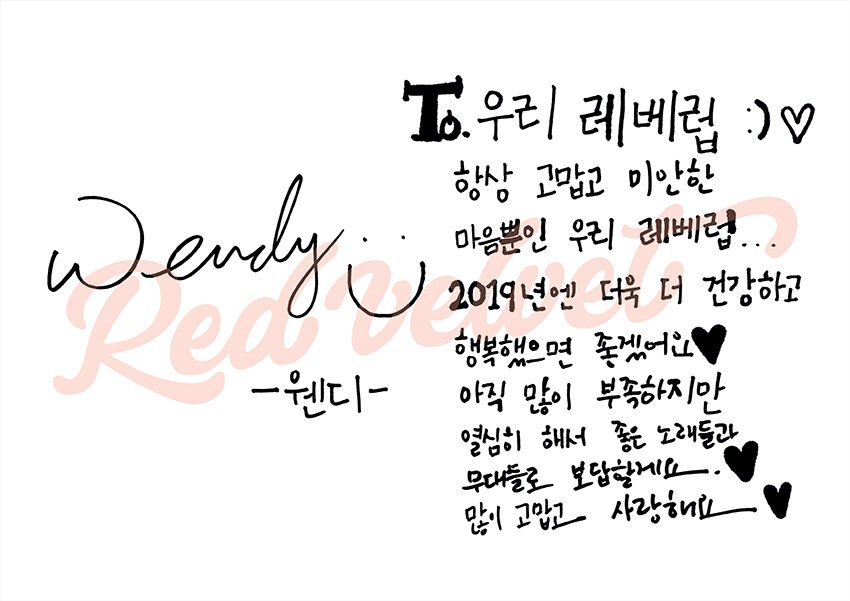 To. 우리 레베럽 :) ♡
항상 고맙고 미안한
마음뿐인 우리 레베럽...
2019년엔 더욱 더 건강하고
행복했으면 좋겠어요♥
아직 많이 부족하지만
열심히 해서 좋은 노래들과
무대들로 보답할게요. ♥
많이 고맙고 사랑해요 ♥
Wendy
-웬디-
Red Velvet